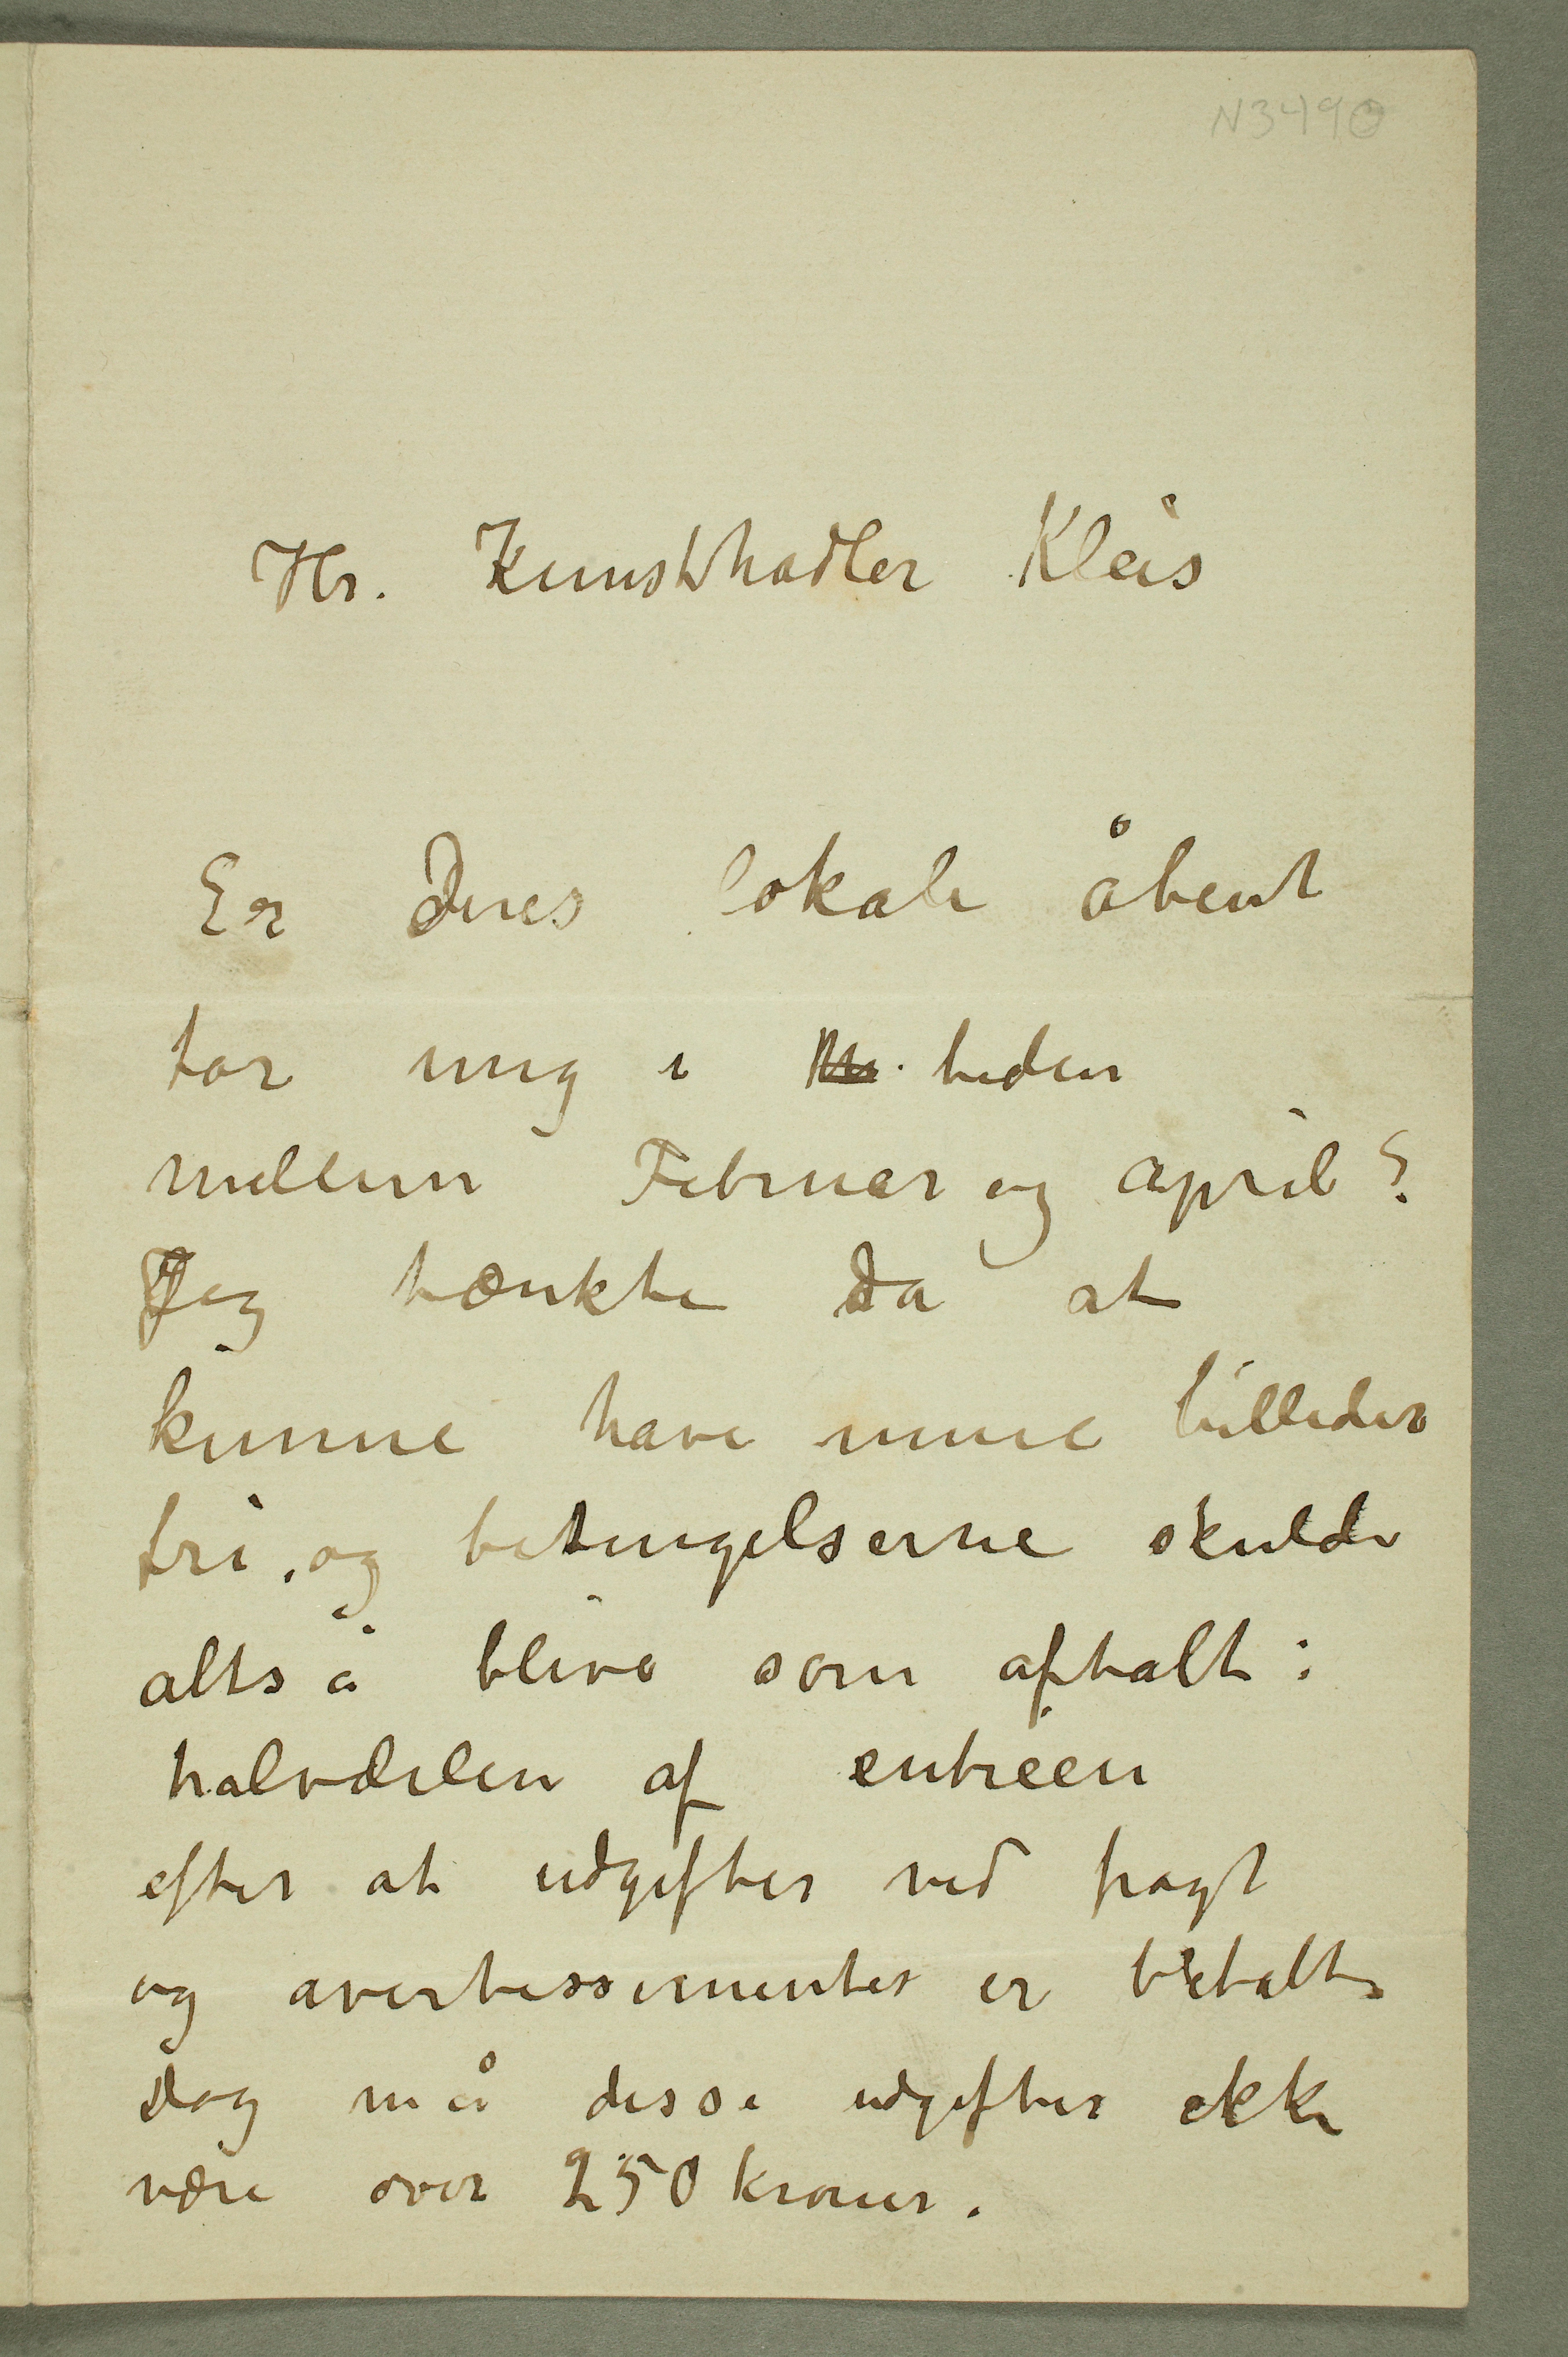 N3490
Hr. Kunsthadler Kleis
Er Deres lokale åbent
for mig i tiden
mellem Februar og April?
Jeg tænkte da at
kunne have mine billeder
fri, og betingelserne skulde
altså blive som aftalt:
halvdelen af entreen
efter at udgifter ved fragt
og avertissementer er betalt.
Dog må disse udgifter ikke
være over 250 kroner.